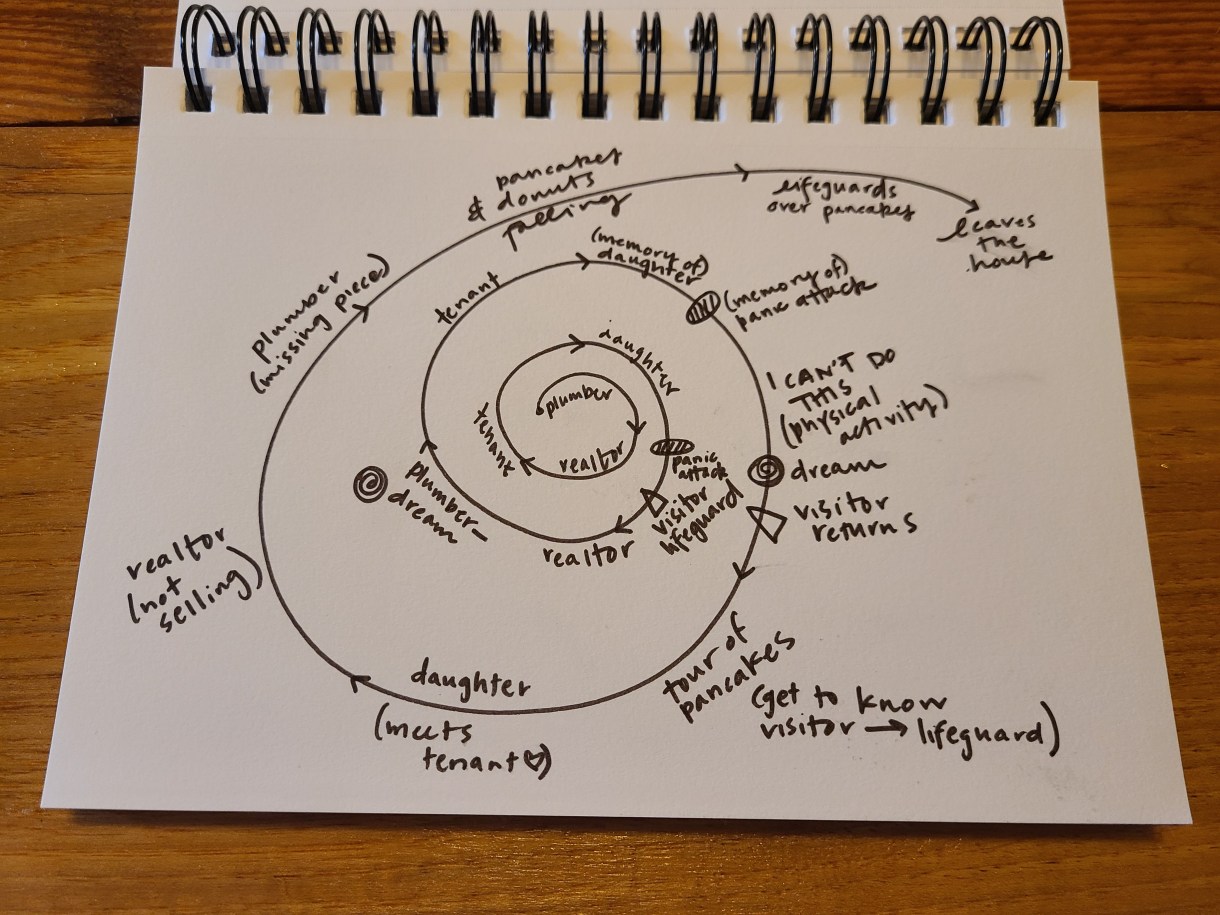 pancakes
& donuts
falling
lifeguards
over pancakes
leaves
the
house
plumber
(missing piece)
(memory of)
daughter
tenant
(memory of)
panic attack
daughter
plumber
tenant
realtor
panic
attack
visitor
lifeguard
I CAN'T DO
THIS
(physical
activity)
dream
visitor
returns
plumber-
dream
realtor
realtor
(not
selling)
tour of
pancakes
(get to know
visitor → lifeguard)
daughter
(meets
tenant♡)